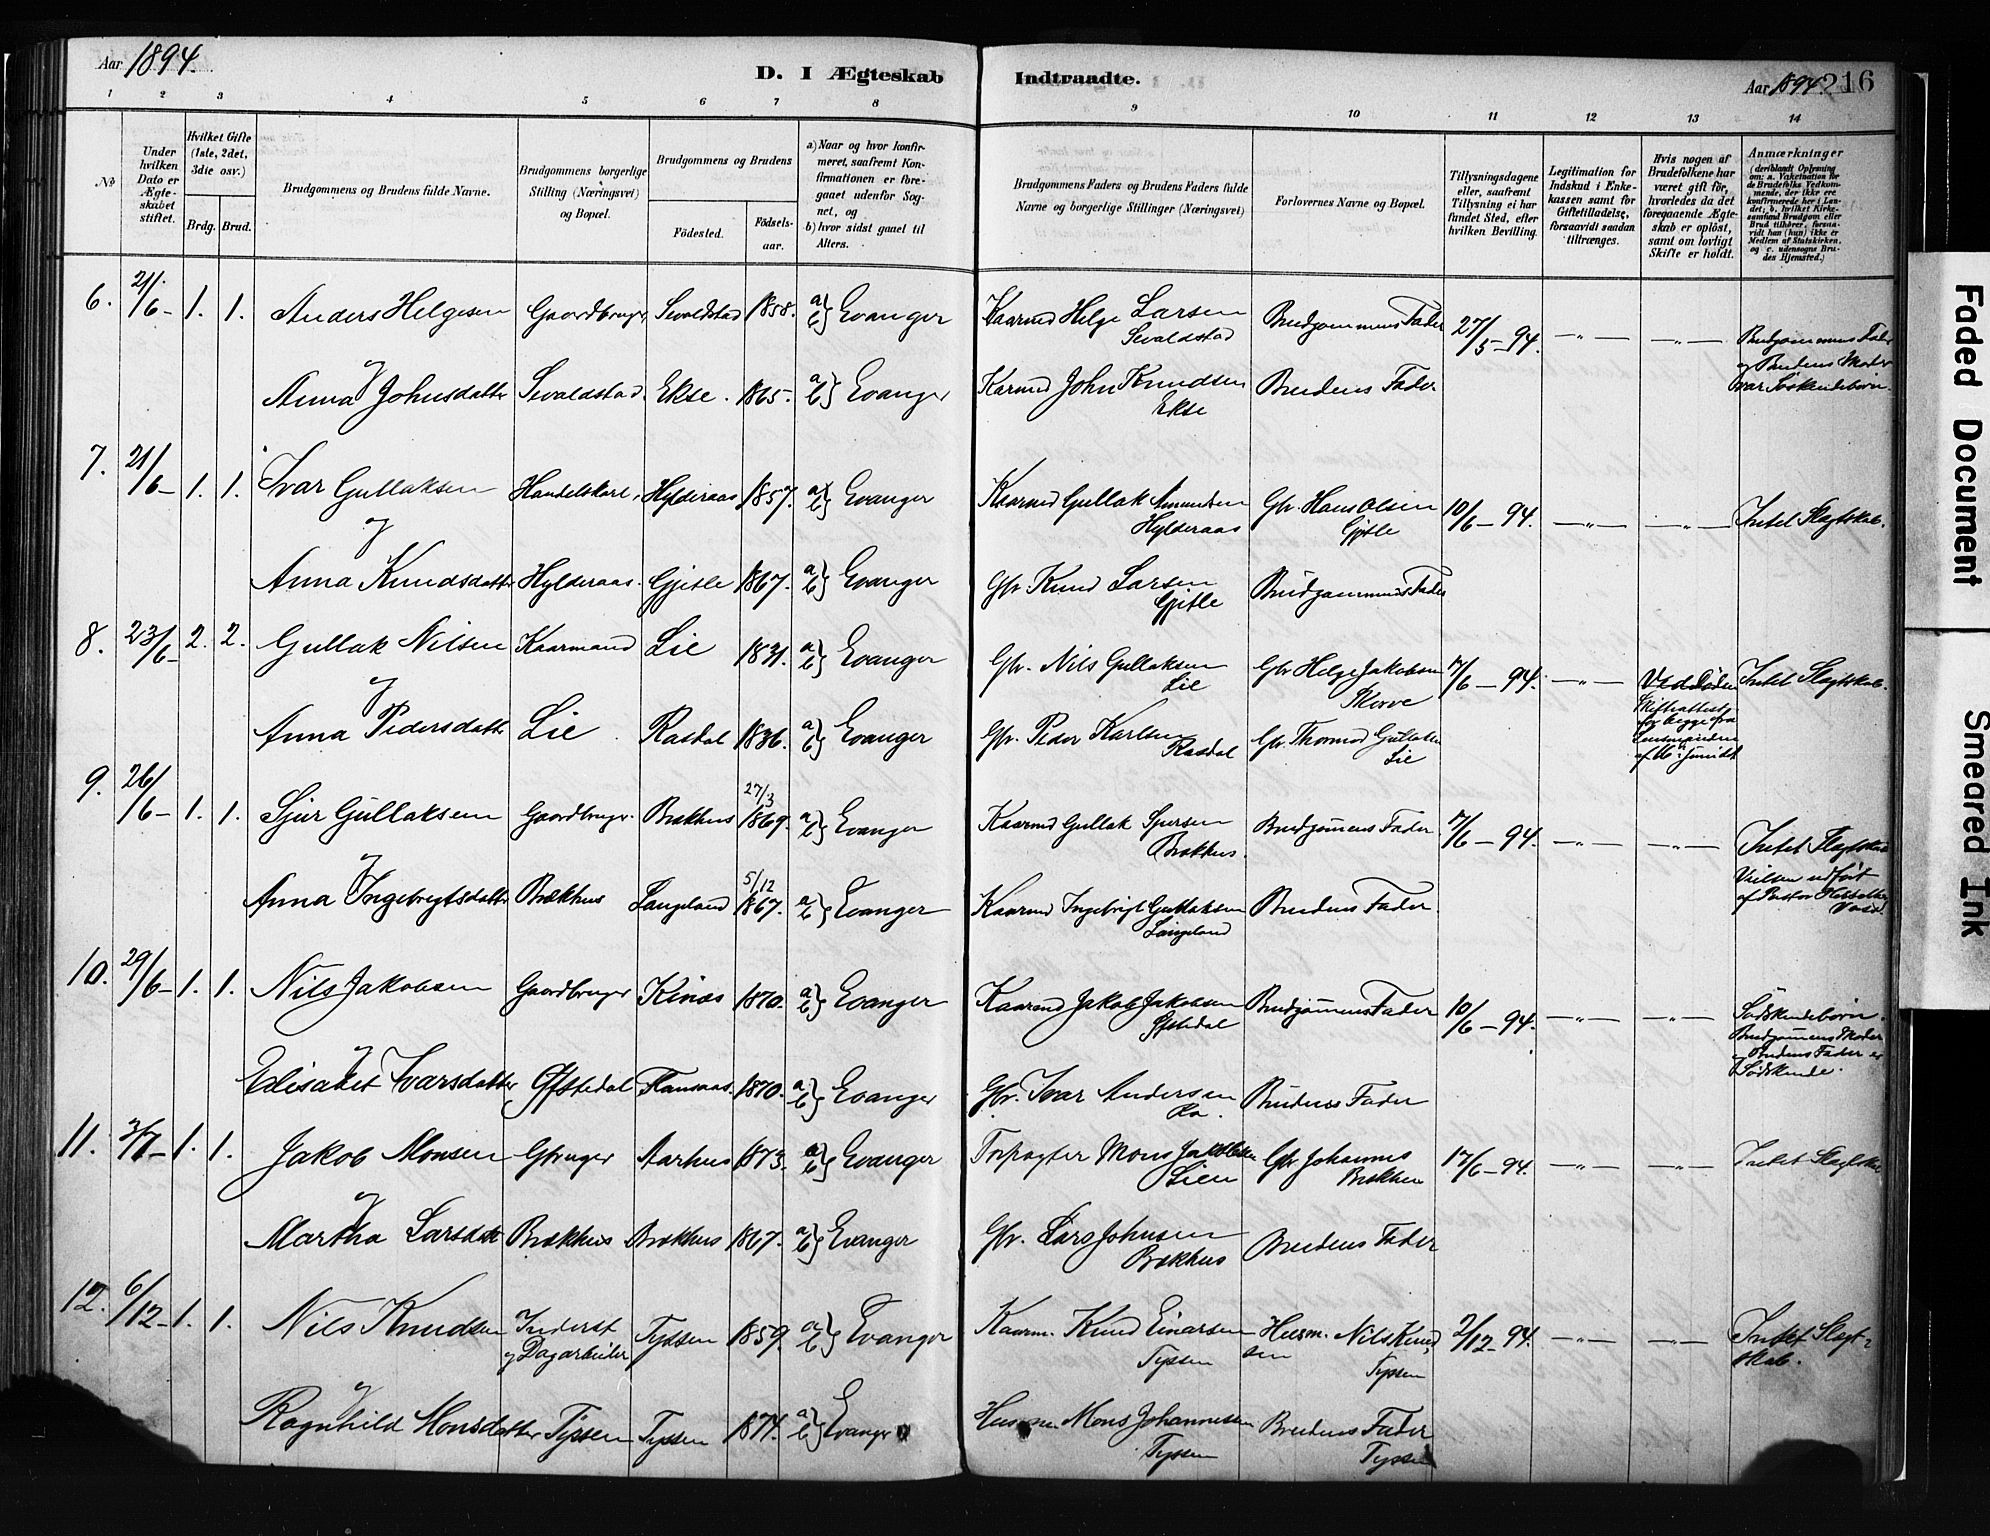 Aar 1894.
D. I Ægteskab Indtraadte.
Aar 1894. 216
1 2 3 4 5 6 7 8 9 10 11 12 13 14
No
Under hvilken Dato er Ægteskabet stiftet.
Hvilket Gifte (1ste, 2det, 3die osv.)
Brdg. Brud.
Brudgommens og Brudens fulde Navne.
Brudgommens borgerlige Stilling (Næringsvei) og Bopæl.
Brudgommens og Brudens
Födested. Födselsaar.
a) Naar og hvor konfirmeret, saafremt Konfirmationen er foregaaet udenfor Sognet, og
b) hvor sidst gaaet til Alters.
Brudgommens Faders og Brudens Faders fulde Navne og borgerlige Stillinger (Næringsvei)
Forlovernes Navne og Bopæl.
Tillysningsdagene eller, saafremt Tillysning ei har fundet Sted, efter hvilken Bevilling.
Legitimation for Indskud i Enkekassen samt for Giftetilladelse, forsaavidt saadan tiltrænges.
Hvis nogen af Brudefolkene har været gift för, hvorledes da det foregaaende Ægteskab er oplöst, samt om lovligt Skifte er holdt.
Anmærkninger
(deriblandt Oplysning om: a. Vakcination for de Brudefolks Vedkommende, der ikke ere konfirmerede her i Landet; b. hvilket Kirkesamfund Brudgom eller Brud tilhører, forsaavidt han (hun) ikke er Medlem af Statskirken, og c. udensogns Brudes Hjemsted.)
6. 21/6 1. 1. Anders Helgesen Gaardbruger Sevaldstad 1858. a) b) Evanger Kaarmd Helge Larsen Sevaldstad Brudgommens Fader 27/5-94. —„— —„— Brudgommens Fader og Brudens Moder var Söskendebörn.
og
Anna Johnsdatter Sevaldstad. Ekse. 1865. a) b) Evanger Karmd John Knudsen Ekse Brudens Fader
7. 21/6 1. 1. Ivar Gullaksen Handelskarl, Hylderaas 1857. a) b) Evanger Kaarmd Gullak Amundsen Hylderaas Gbr. Hans Olsen Gjitle 10/6-94. —„— —„— Intet Slagtskab.
og
Anna Knudsdatter Hylderaas. Gjitle 1867. a) b) Evanger Gbr. Knud Larsen Gjitle Brudgommens Fader
8. 23/6 2. 2. Gullak Nilsen Kaarmand Lie 1831. a) b) Evanger Gbr. Nils Gullaksen Lie Gbr Helge Jakobsen Skorve 17/6-94. —„— Ved Döden Skifteattest for begge fra Lensmanden Intet Slagtskab.
og
Anna Pedersdatter Lie Rasdal 1836. a) b) Evanger Gbr. Peder Karlsen Rasdal Gbr. Thormod Gullaksen Lie
9. 26/6 1. 1. Sjur Gullaksen Gaardbruger. Brækhus 27/3 1869. a) b) Evanger Kaarmd Gullak Sjursen Brækhus. Brudgommens Fader 17/6-94. —„— —„— Intet Slagtskab Vielsen udfört af Pastor Voss.
og
Anna Ingebrigtsdatter Brækhus Langeland 5/12 1867. a) b) Evanger Kaarmd Ingebrigt Gullaksen Langeland Brudens Fader
10. 29/6 1. 1. Nils Jakobsen Gaardbruger Kinæs 1870. a) b) Evanger Kaarmd Jakob Jakobsen Gjstedal Brudgommens Fader 10/6-94. —„— —„— Södskendebörn. Brudgommens Moder og Brudens Fader er Södskende.
og
Elisabet Ivarsdatter Gjstedal Flansaas. 1870. a) b) Evanger Gbr. Ivar Andersen Brudens Fader
11. 3/7 1. 1. Jakob Monsen Gbruger Aarhus 1873. a) b) Evanger Forpagter Mons Jakobsen Lien Gbr Johannes Brækhus 17/6-94. —„— —„— Intet Slagtskab
og
Martha Larsdtr Brækhus Brækhus 1867. a) b) Evanger Gbr. Lars Johnsen Brækhus Brudens Fader
12. 6/12 1. 1. Nils Knudsen Inderst og Dagarbeider Tyssen 1859. a) b) Evanger Kaarm. Knud Einarsen Tyssen Husm. Nils Knudsen Tyssen 2/12-94. —„— —„— Intet Slagtskab.
og
Ragnhild Monsdatter Tyssen Tyssen 1874. a) b) Evanger Husm Mons Johannessen Tyssen Brudens Fader Tyssen
Faded Document
Smeared Ink